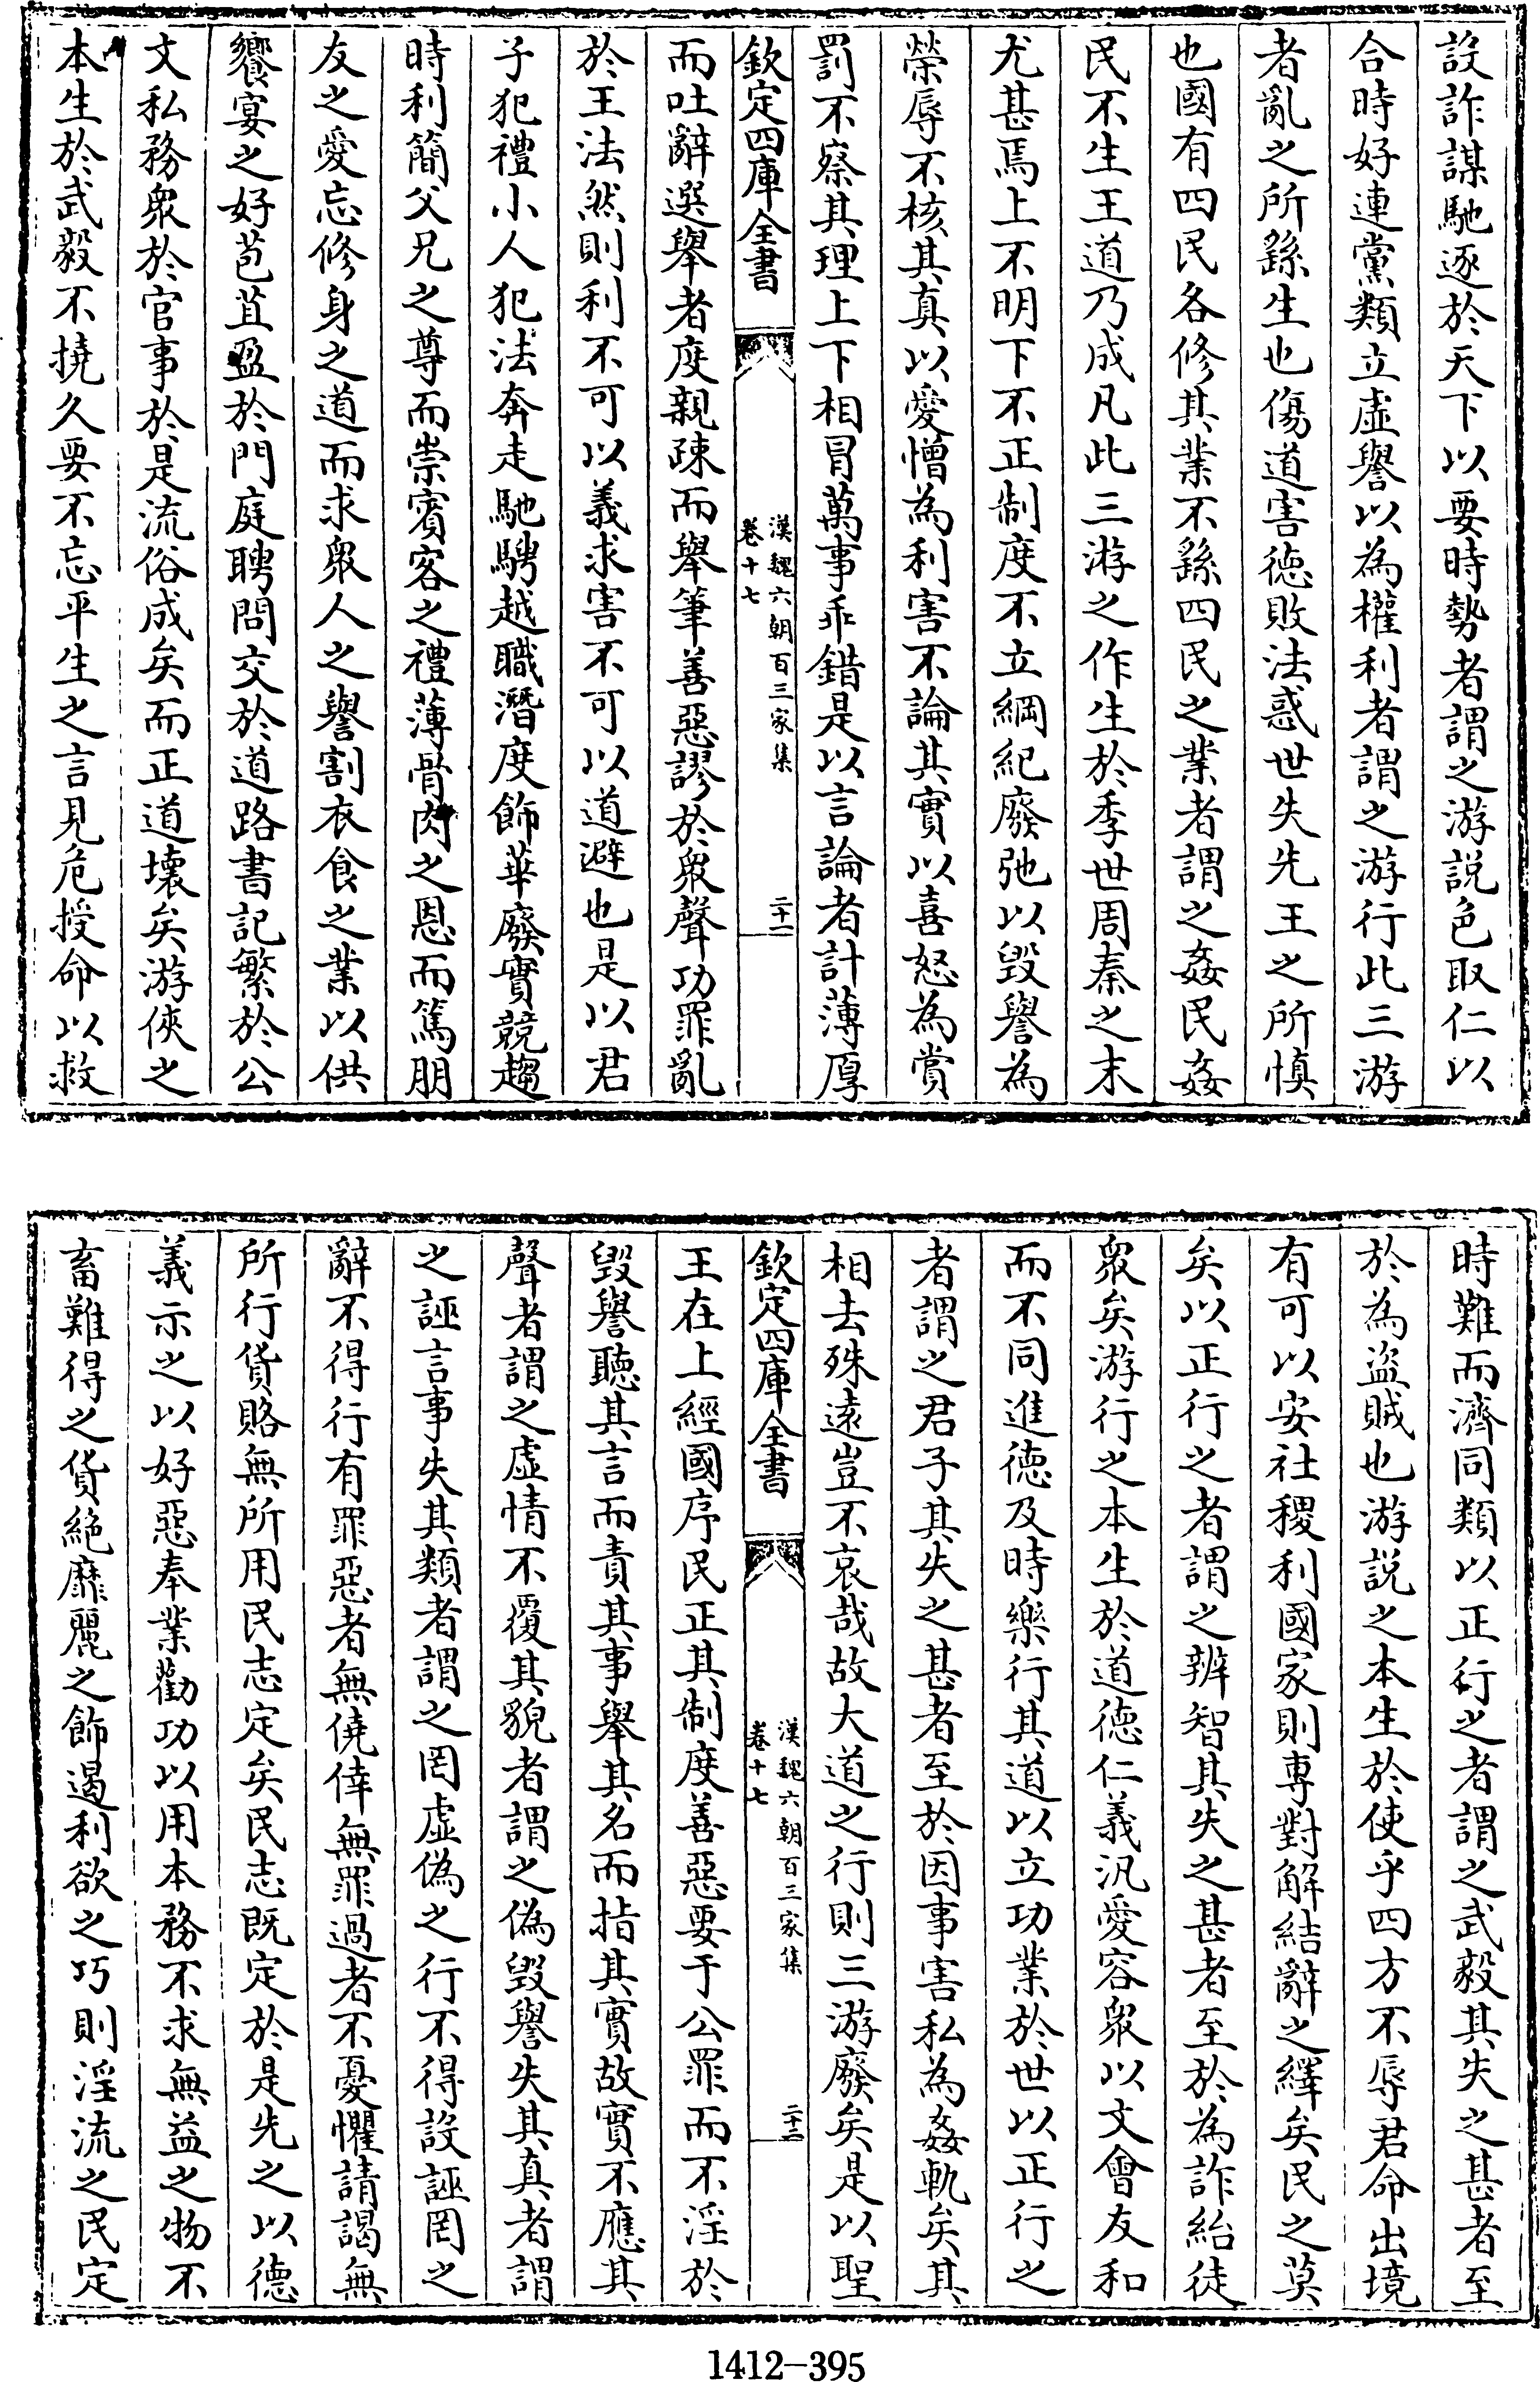 設詐謀馳逐於天下以要時勢者謂之游説色取仁以
合時好連黨類立虛譽以為權利者謂之游行此三游
者亂之所繇生也傷道害徳敗法惑世失先王之所慎
也國有四民各修其業不繇四民之業者謂之姦民姦
民不生王道乃成凡此三游之作生於季世周秦之末
尤甚焉上不明下不正制度不立綱紀廢弛以毀譽為
榮辱不核其真以愛憎為利害不論其實以喜怒為賞
罰不察其理上下相冒萬事乖錯是以言論者計薄厚
欽定四庫全書
漢魏六朝百三家集
卷十七
二十一
而吐辭選舉者度親疎而舉筆善惡謬於衆聲功罪亂
於王法然則利不可以義求害不可以道避也是以君
子犯禮小人犯法奔走馳騁越職潛度飾華廢實競趨
時利簡父兄之尊而崇賓客之禮薄骨肉之恩而篤朋
友之愛忘修身之道而求衆人之譽割衣食之業以供
饗宴之好苞苴盈於門庭聘問交於道路書記繁於公
文私務衆於官事於是流俗成矣而正道壞矣游俠之
本生於武毅不撓久要不忘平生之言見危授命以救
時難而濟同類以正行之者謂之武毅其失之甚者至
於為盜賊也游説之本生於使乎四方不辱君命出境
有可以安社稷利國家則專對解結辭之繹矣民之莫
矣以正行之者謂之辨智其失之甚者至於為詐紿徒
衆矣游行之本生於道徳仁義汎愛容衆以文會友和
而不同進徳及時樂行其道以立功業於世以正行之
者謂之君子其失之甚者至於因事害私為姦軌矣其
相去殊遠豈不哀哉故大道之行則三游廢矣是以聖
欽定四庫全書
漢魏六朝百三家集
卷十七
二十二
王在上經國序民正其制度善惡要于公罪而不淫於
毀譽聽其言而責其事舉其名而指其實故實不應其
聲者謂之虛情不覆其貌者謂之偽毀譽失其真者謂
之誣言事失其類者謂之罔虛偽之行不得設誣罔之
辭不得行有罪惡者無僥倖無罪過者不憂懼請謁無
所行貨賂無所用民志定矣民志既定於是先之以徳
義示之以好惡奉業勸功以用本務不求無益之物不
畜難得之貨絶靡麗之飾遏利欲之巧則淫流之民定
1412-395